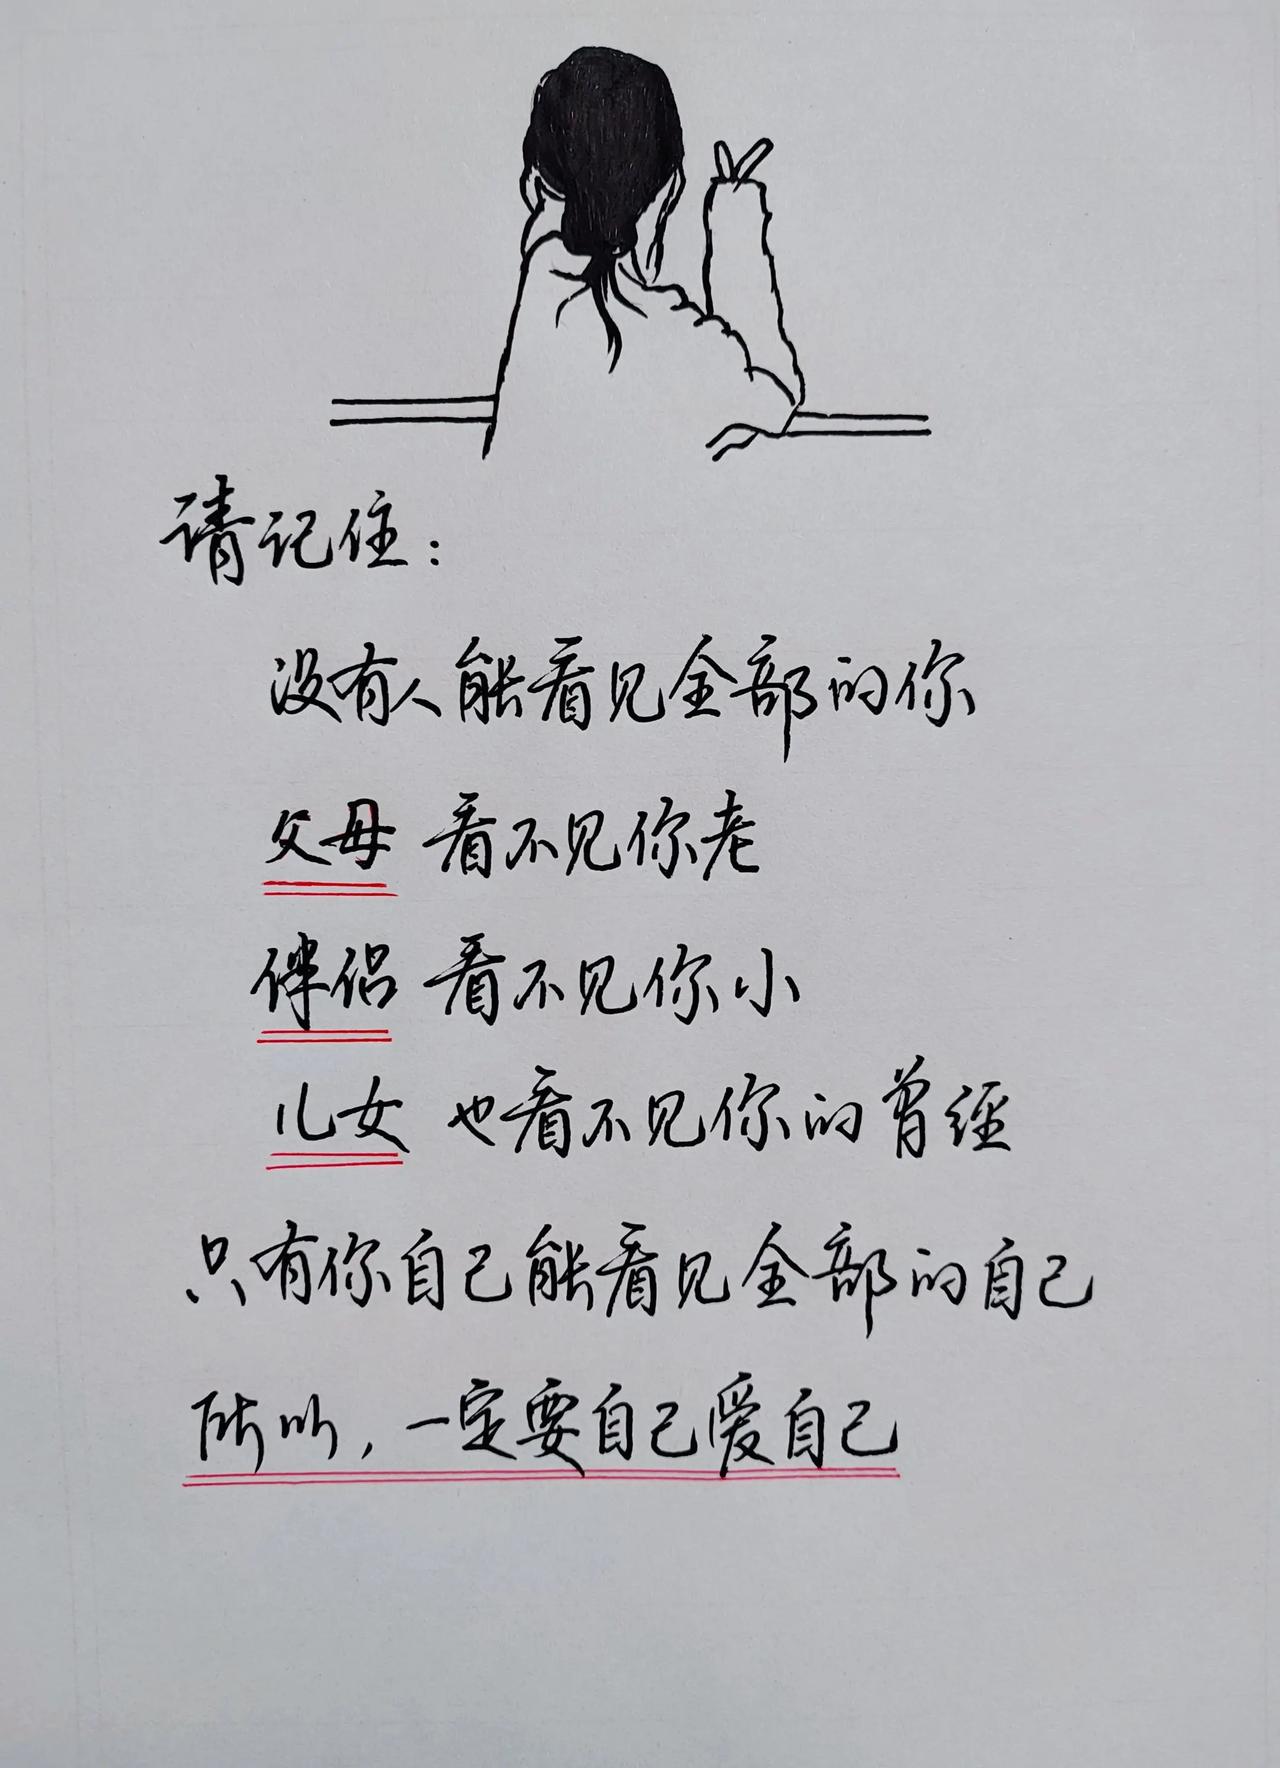 请记住：
没有人能看见全部的你
父母 看不见你老
伴侣 看不见你小
儿女 也看不见你的曾经
只有你自己能看见全部的自己
所以，一定要自己爱自己